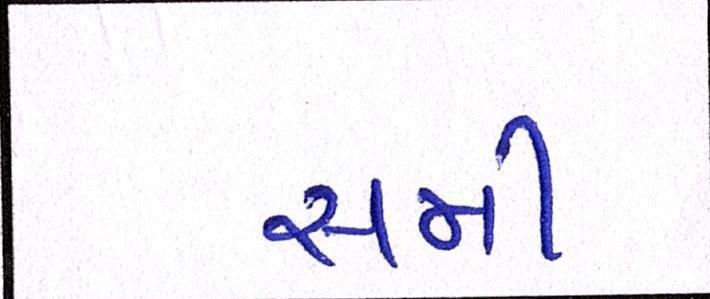 સમી